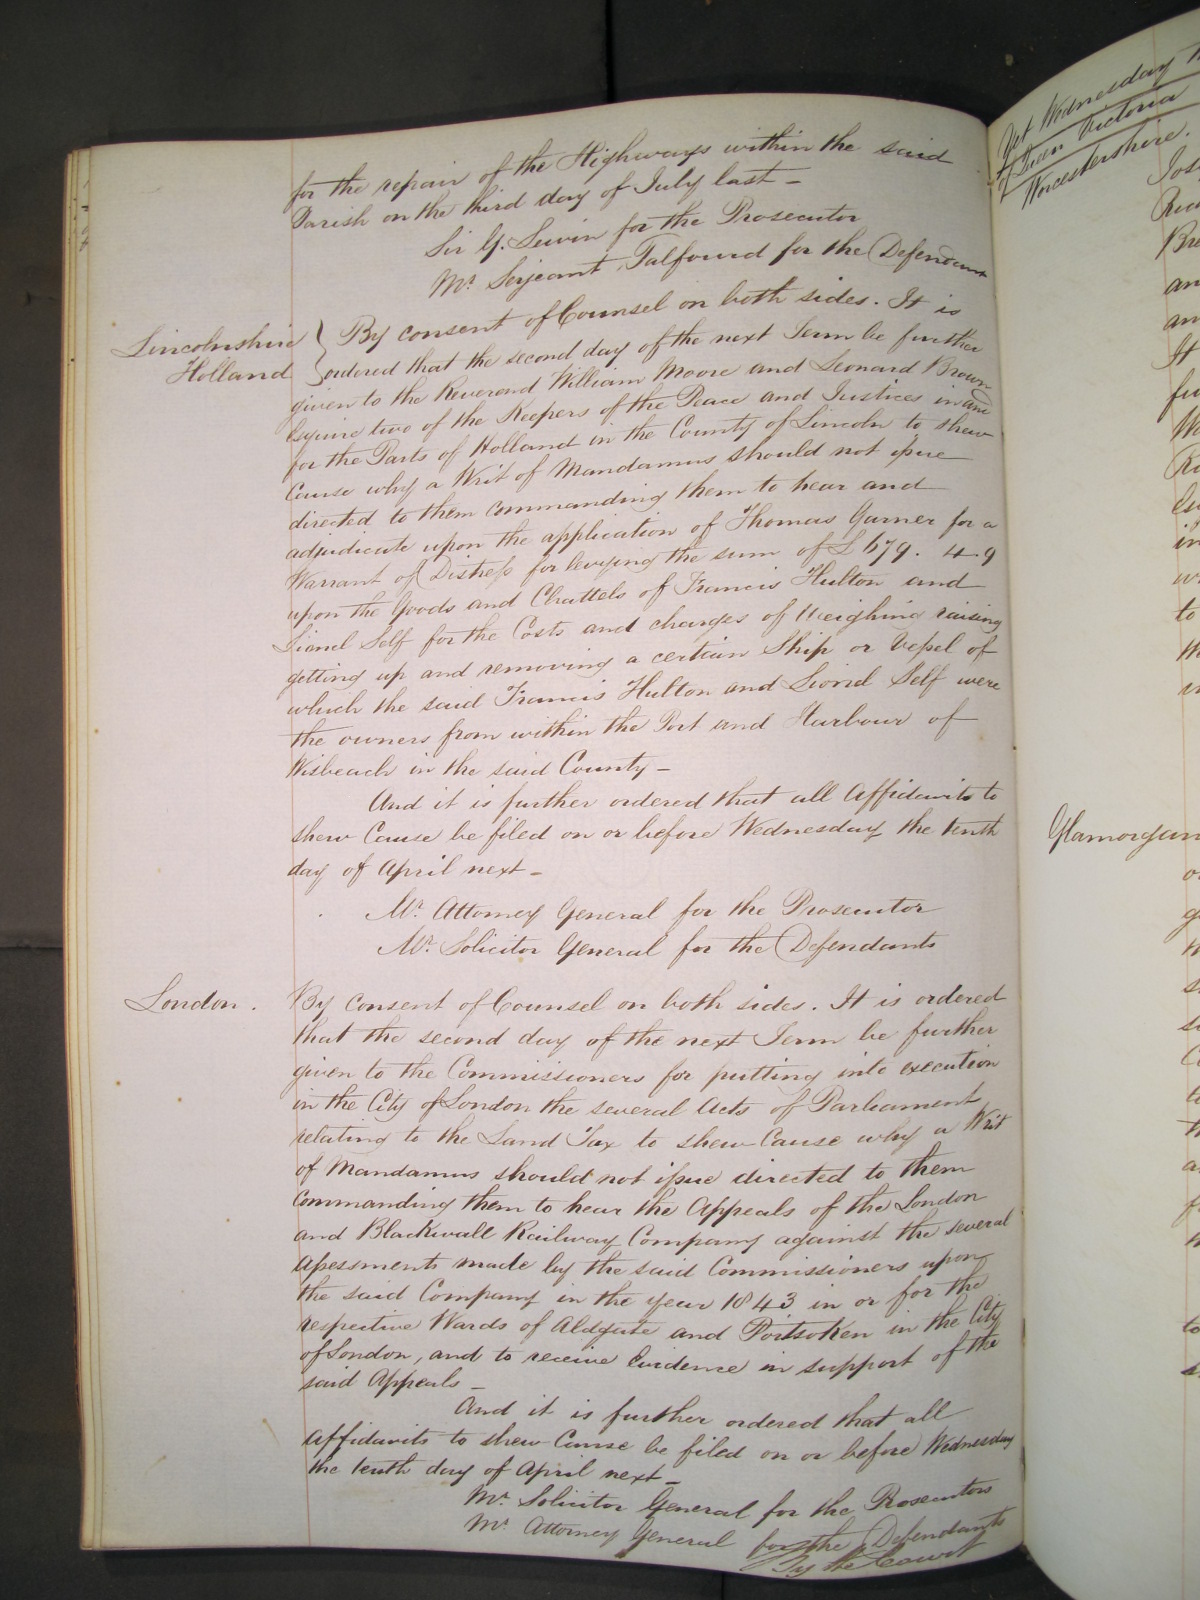 for the repair of the Highways within the said
Parish on the third day of July last -
Sir G. Lewin for the Prosecutor
Mr. Serjeant Talfourd for the Defendant
Lincolnshire
Holland
By consent of Counsel on both sides. It is
ordered that the second day of the next Term be further
given to the Reverend William Moore and Leonard Brown
Esquire two of the Keepers of the Peace and Justices in and
for the Parts of Holland in the County of Lincoln to shew
Cause why a Writ of Mandamus should not issue
directed to them commanding them to hear and
adjudicate upon the application of Thomas Garner for a
Warrant of Distress for levying the sum of £679. 4. 9
upon the Goods and Chattels of Francis Hulton and
Lionel Self for the Costs and charges of Weighing raising
getting up and removing a certain Ship or Vessel of
which the said Francis Hulton and Lionel Self were
the owners from within the Port and Harbour of
Wisbeach in the said County -
And it is further ordered that all Affidavits to
shew Cause be filed on or before Wednesday the tenth
day of April next -
Mr. Attorney General for the Prosecutor
Mr. Solicitor General for the Defendants
London.
By consent of Counsel on both sides. It is ordered
that the second day of the next Term be further
given to the Commissioners for putting into execution
in the City of London the several Acts of Parliament
relating to the Land Tax to shew Cause why a Writ
of Mandamus should not issue directed to them
Commanding them to hear the Appeals of the London
and Blackwall Railway Company against the several
Assessments made by the said Commissioners upon
the said Company in the year 1843 in or for the
respective Wards of Aldgate and Portsoken in the City
of London, and to receive Evidence in support of the
said Appeals -
And it is further ordered that all
Affidavits to shew Cause be filed on or before Wednesday
the tenth day of April next -
Mr. Solicitor General for the Prosecutors
Mr. Attorney General for the Defendants
By the Court
Yet Wednesday
Queen Victoria
Worcestershire.
Glamorgan